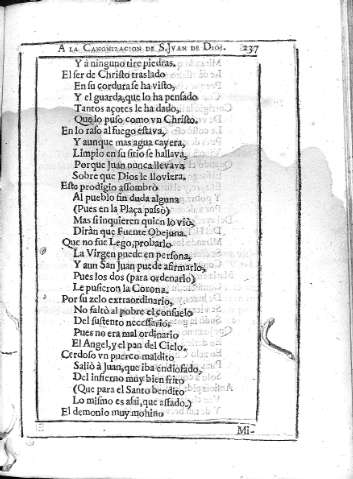 A LA CANONIZACION DE S. JVAN DE DIOS. 237
Y à ninguno tire piedras.
El ser de Christo traslado
En su cordura se ha visto,
Y el guarda, que lo ha pensado
Tantos açotes le ha dado,
Que lo puso como vn Christo.
En lo raso al fuego estava,
Y aunque mas agua cayera,
Limpio en su sitio se hallava,
Porque Juan nunca llevava
Sobre que Dios le lloviera.
Este prodigio assombrò
Al pueblo sin duda alguna
(Pues en la Plaça passò)
Mas si inquieren quien lo viò,
Diràn que Fuente Obejuna.
Que no fue Lego, probarlo
La Virgen puede en persona,
Y aun San Juan puede afirmarlo,
Pues los dos (para ordenarlo)
Le pusieron la Corona.
Por su zelo extraordinario,
No faltò al pobre el consuelo
Del sustento necessario.
Pues no era mal ordinario
El Angel, y el pan del Cielo.
Cerdoso vn puerco maldito
Saliò à Juan, que iba endiosado,
Del infierno muy bien frito
(Que para el Santo bendito
Lo mismo es assi, que assado.)
El demonio muy mohino
Mi-